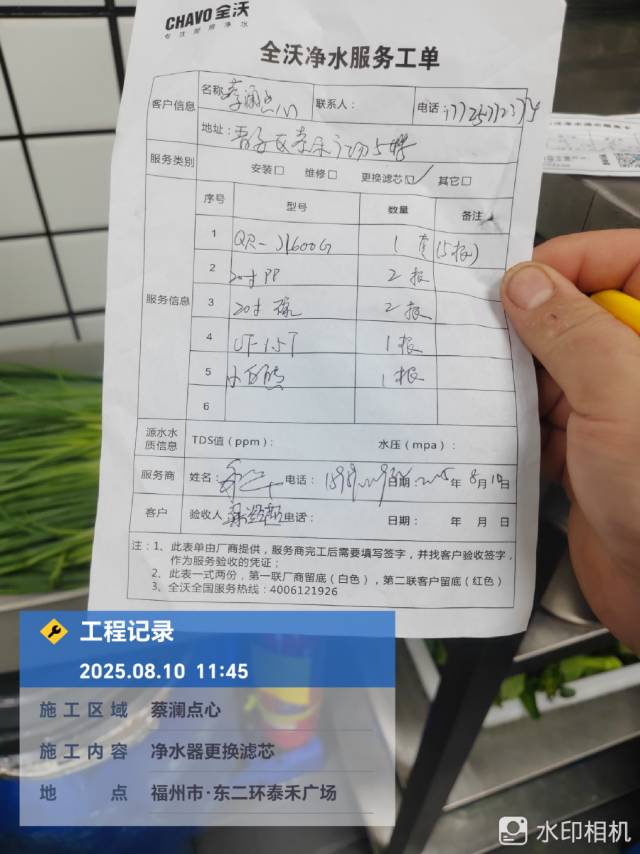 CHAVO 全沃
专注厨房净水
全沃净水服务工单
客户信息
名称 蔡澜点心
联系人：
电话：
地址：
服务类别
安装□ 维修□ 更换滤芯□✓ 其它□
服务信息
序号 型号 数量 备注
1 QR-J1600G 1套(5根)
2 20寸PP 2根
3 20寸碳 2根
4 UF-1.5T 1根
5 1根
6
源水水质信息
TDS值（ppm）： 水压（mpa）：
服务商
姓名： 电话： 日期：2025年8月10日
客户
验收人 电话： 日期： 年 月 日
注：1、此表单由厂商提供，服务商完工后需要填写签字，并找客户验收签字，
作为服务验收的凭证；
2、此表一式两份，第一联厂商留底（白色），第二联客户留底（红色）
3、全沃全国服务热线：4006121926
工程记录
2025.08.10 11:45
施工区域 蔡澜点心
施工内容 净水器更换滤芯
地点 福州市·东二环泰禾广场
水印相机